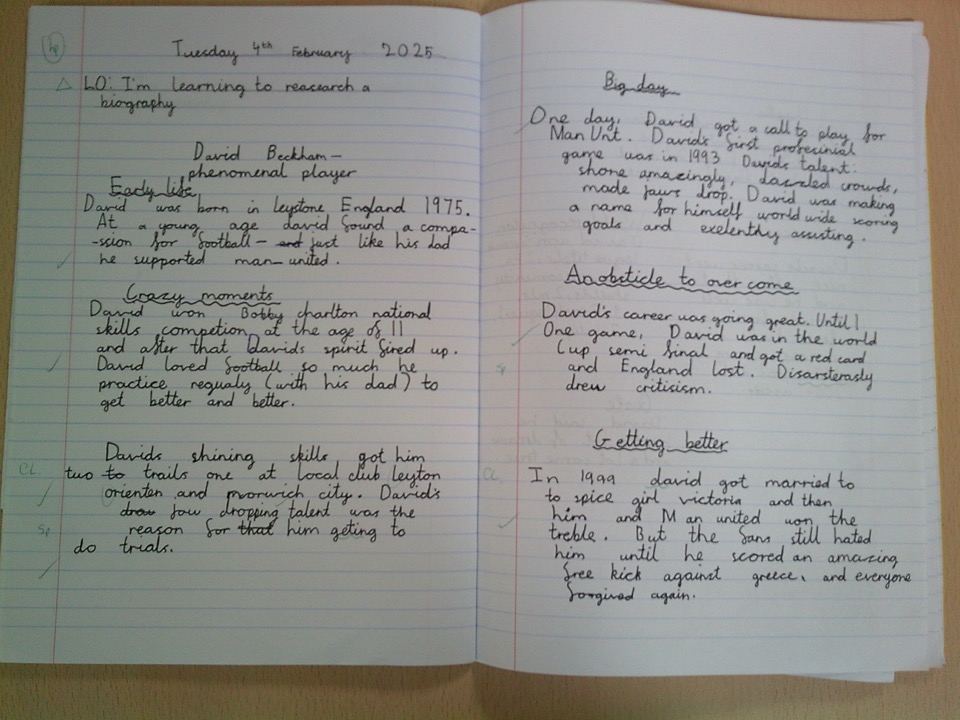 Tuesday 4th February 2025
LO: I'm learning to reasearch a
biography
David Beckham—
phenomenal player
Early life
David was born in leystone England 1975.
At a young age david found a compa-
-ssion for football— and just like his dad
he supported man_united.
Crazy moments
David won Bobby charlton national
skills competion at the age of 11
and after that Davids spirit fired up.
David loved football so much he
practice regualy (with his dad) to
get better and better.
Davids shining skills got him
CL two to trails one at local club leyton
orienten and norwich city. David's
draw jaw dropping talent was the
Sp reason for that him geting to
do trials.
Big day
One day, David got a call to play for
Man Unt. David's first profesinial
game was in 1993 Davids talent:
shone amazingly, dazzled crowds,
made jaws drop. David was making
a name for himself world wide scoring
goals and exelenthy assisting.
An obsticle to over come
David's career was going great. Until!
One game, David was in the world
Cup semi final and got a red card
sp and England lost. Disarsterasly
drew critisism.
Getting better
CL In 1999 david got married to
to spice girl victoria and then
him and Man united won the
treble. But the fans still hated
him until he scored an amazing
free kick against greece, and everyone
forgived again.